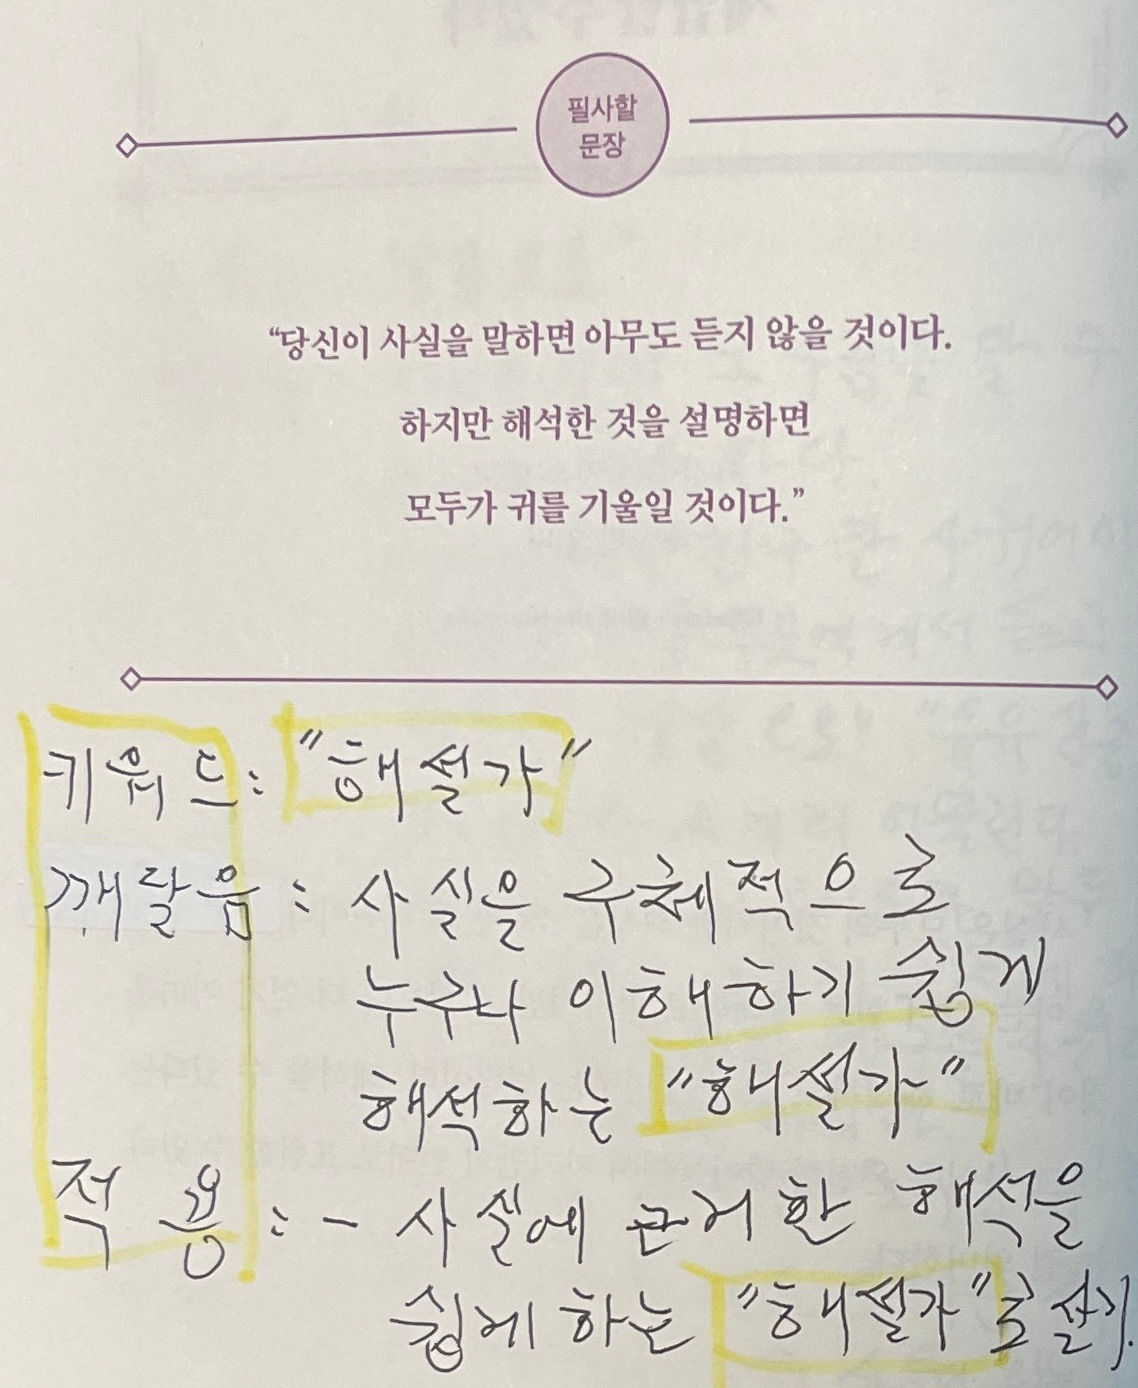 필사할
문장
“당신이 사실을 말하면 아무도 듣지 않을 것이다.
하지만 해석한 것을 설명하면
모두가 귀를 기울일 것이다.”
키워드 : "해설가"
깨달음 : 사실을 구체적으로
누구나 이해하기 쉽게
해석하는 "해설가"
적용 : - 사실에 근거한 해석을
쉽게 하는 "해설가"로 살기.